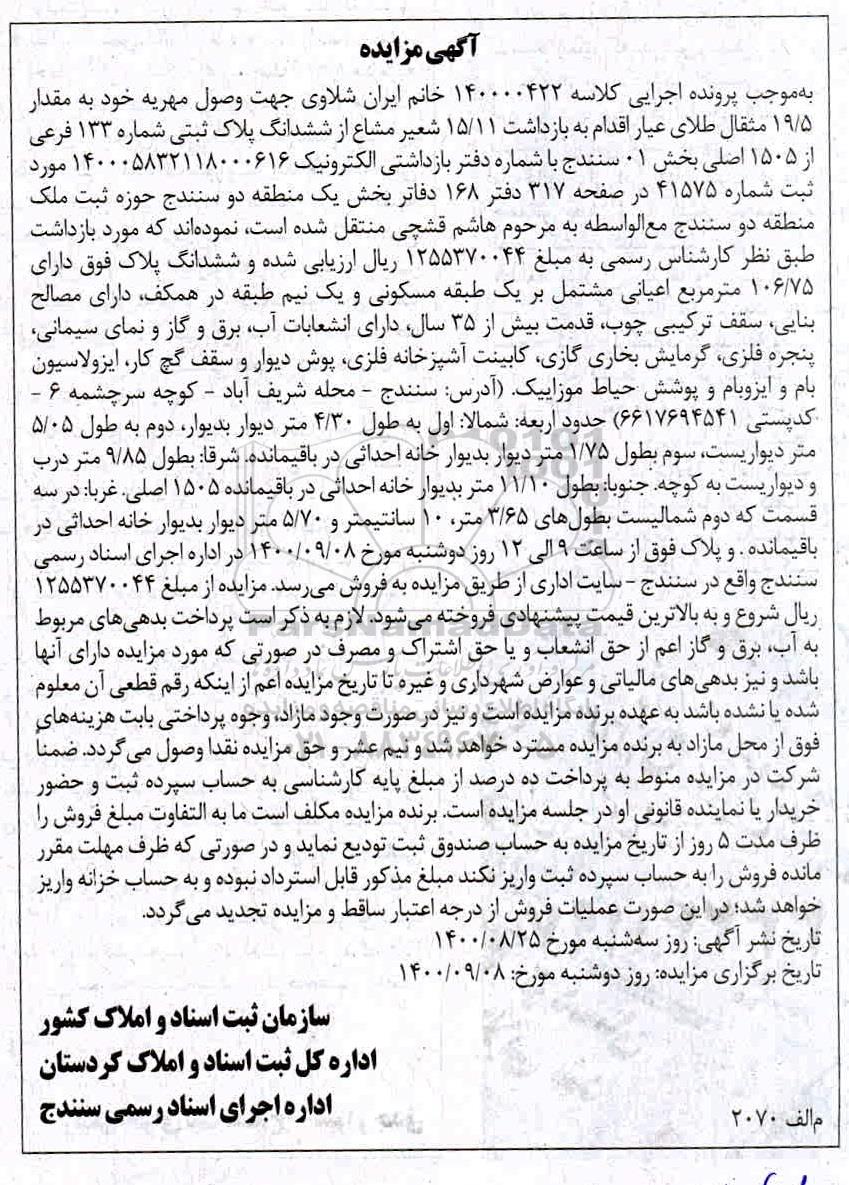 آگهی مزایده
به‌موجب پرونده اجرایی کلاسه ۱۴۰۰۰۰۴۲۲ خانم ایران شلاوی جهت وصول مهریه خود به مقدار
۱۹/۵ مثقال طلای عیار اقدام به بازداشت ۱۵/۱۱ شعیر مشاع از ششدانگ پلاک ثبتی شماره ۱۳۳ فرعی
از ۱۵۰۵ اصلی بخش ۰۱ سنندج با شماره دفتر بازداشتی الکترونیک ۱۴۰۰۰۵۸۳۲۱۱۸۰۰۰۶۱۶ مورد
ثبت شماره ۴۱۵۷۵ در صفحه ۳۱۷ دفتر ۱۶۸ دفاتر بخش یک منطقه دو سنندج حوزه ثبت ملک
منطقه دو سنندج مع‌الواسطه به مرحوم هاشم قشچی منتقل شده است، نموده‌اند که مورد بازداشت
طبق نظر کارشناس رسمی به مبلغ ۱۲۵۵۳۷۰۰۴۴ ریال ارزیابی شده و ششدانگ پلاک فوق دارای
۱۰۶/۷۵ مترمربع اعیانی مشتمل بر یک طبقه مسکونی و یک نیم طبقه در همکف، دارای مصالح
بنایی، سقف ترکیبی چوب، قدمت بیش از ۳۵ سال، دارای انشعابات آب، برق و گاز و نمای سیمانی،
پنجره فلزی، گرمایش بخاری گازی، کابینت آشپزخانه فلزی، پوش دیوار و سقف گچ کار، ایزولاسیون
بام و ایزوبام و پوشش حیاط موزاییک. (آدرس: سنندج - محله شریف آباد - کوچه سرچشمه ۶ -
کدپستی ۶۶۱۷۶۹۴۵۴۱) حدود اربعه: شمالا: اول به طول ۴/۳۰ متر دیوار بدیوار، دوم به طول ۵/۰۵
متر دیواریست، سوم بطول ۱/۷۵ متر دیوار بدیوار خانه احداثی در باقیمانده. شرقا: بطول ۹/۸۵ متر درب
و دیواریست به کوچه. جنوبا: بطول ۱۱/۱۰ متر بدیوار خانه احداثی در باقیمانده ۱۵۰۵ اصلی. غربا: در سه
قسمت که دوم شمالیست بطول‌های ۳/۶۵ متر، ۱۰ سانتیمتر و ۵/۷۰ متر دیوار بدیوار خانه احداثی در
باقیمانده . و پلاک فوق از ساعت ۹ الی ۱۲ روز دوشنبه مورخ ۱۴۰۰/۰۹/۰۸ در اداره اجرای اسناد رسمی
سنندج واقع در سنندج - سایت اداری از طریق مزایده به فروش می‌رسد. مزایده از مبلغ ۱۲۵۵۳۷۰۰۴۴
ریال شروع و به بالاترین قیمت پیشنهادی فروخته می‌شود. لازم به ذکر است پرداخت بدهی‌های مربوط
به آب، برق و گاز اعم از حق انشعاب و یا حق اشتراک و مصرف در صورتی که مورد مزایده دارای آنها
باشد و نیز بدهی‌های مالیاتی و عوارض شهرداری و غیره تا تاریخ مزایده اعم از اینکه رقم قطعی آن معلوم
شده یا نشده باشد به عهده برنده مزایده است و نیز در صورت وجود مازاد، وجوه پرداختی بابت هزینه‌های
فوق از محل مازاد به برنده مزایده مسترد خواهد شد و نیم عشر و حق مزایده نقدا وصول می‌گردد. ضمناً
شرکت در مزایده منوط به پرداخت ده درصد از مبلغ پایه کارشناسی به حساب سپرده ثبت و حضور
خریدار یا نماینده قانونی او در جلسه مزایده است. برنده مزایده مکلف است ما به التفاوت مبلغ فروش را
ظرف مدت ۵ روز از تاریخ مزایده به حساب صندوق ثبت تودیع نماید و در صورتی که ظرف مهلت مقرر
مانده فروش را به حساب سپرده ثبت واریز نکند مبلغ مذکور قابل استرداد نبوده و به حساب خزانه واریز
خواهد شد؛ در این صورت عملیات فروش از درجه اعتبار ساقط و مزایده تجدید می‌گردد.
تاریخ نشر آگهی: روز سه‌شنبه مورخ ۱۴۰۰/۰۸/۲۵
تاریخ برگزاری مزایده: روز دوشنبه مورخ: ۱۴۰۰/۰۹/۰۸
سازمان ثبت اسناد و املاک کشور
اداره کل ثبت اسناد و املاک کردستان
اداره اجرای اسناد رسمی سنندج
م‌الف ۲۰۷۰
ParsNamadData